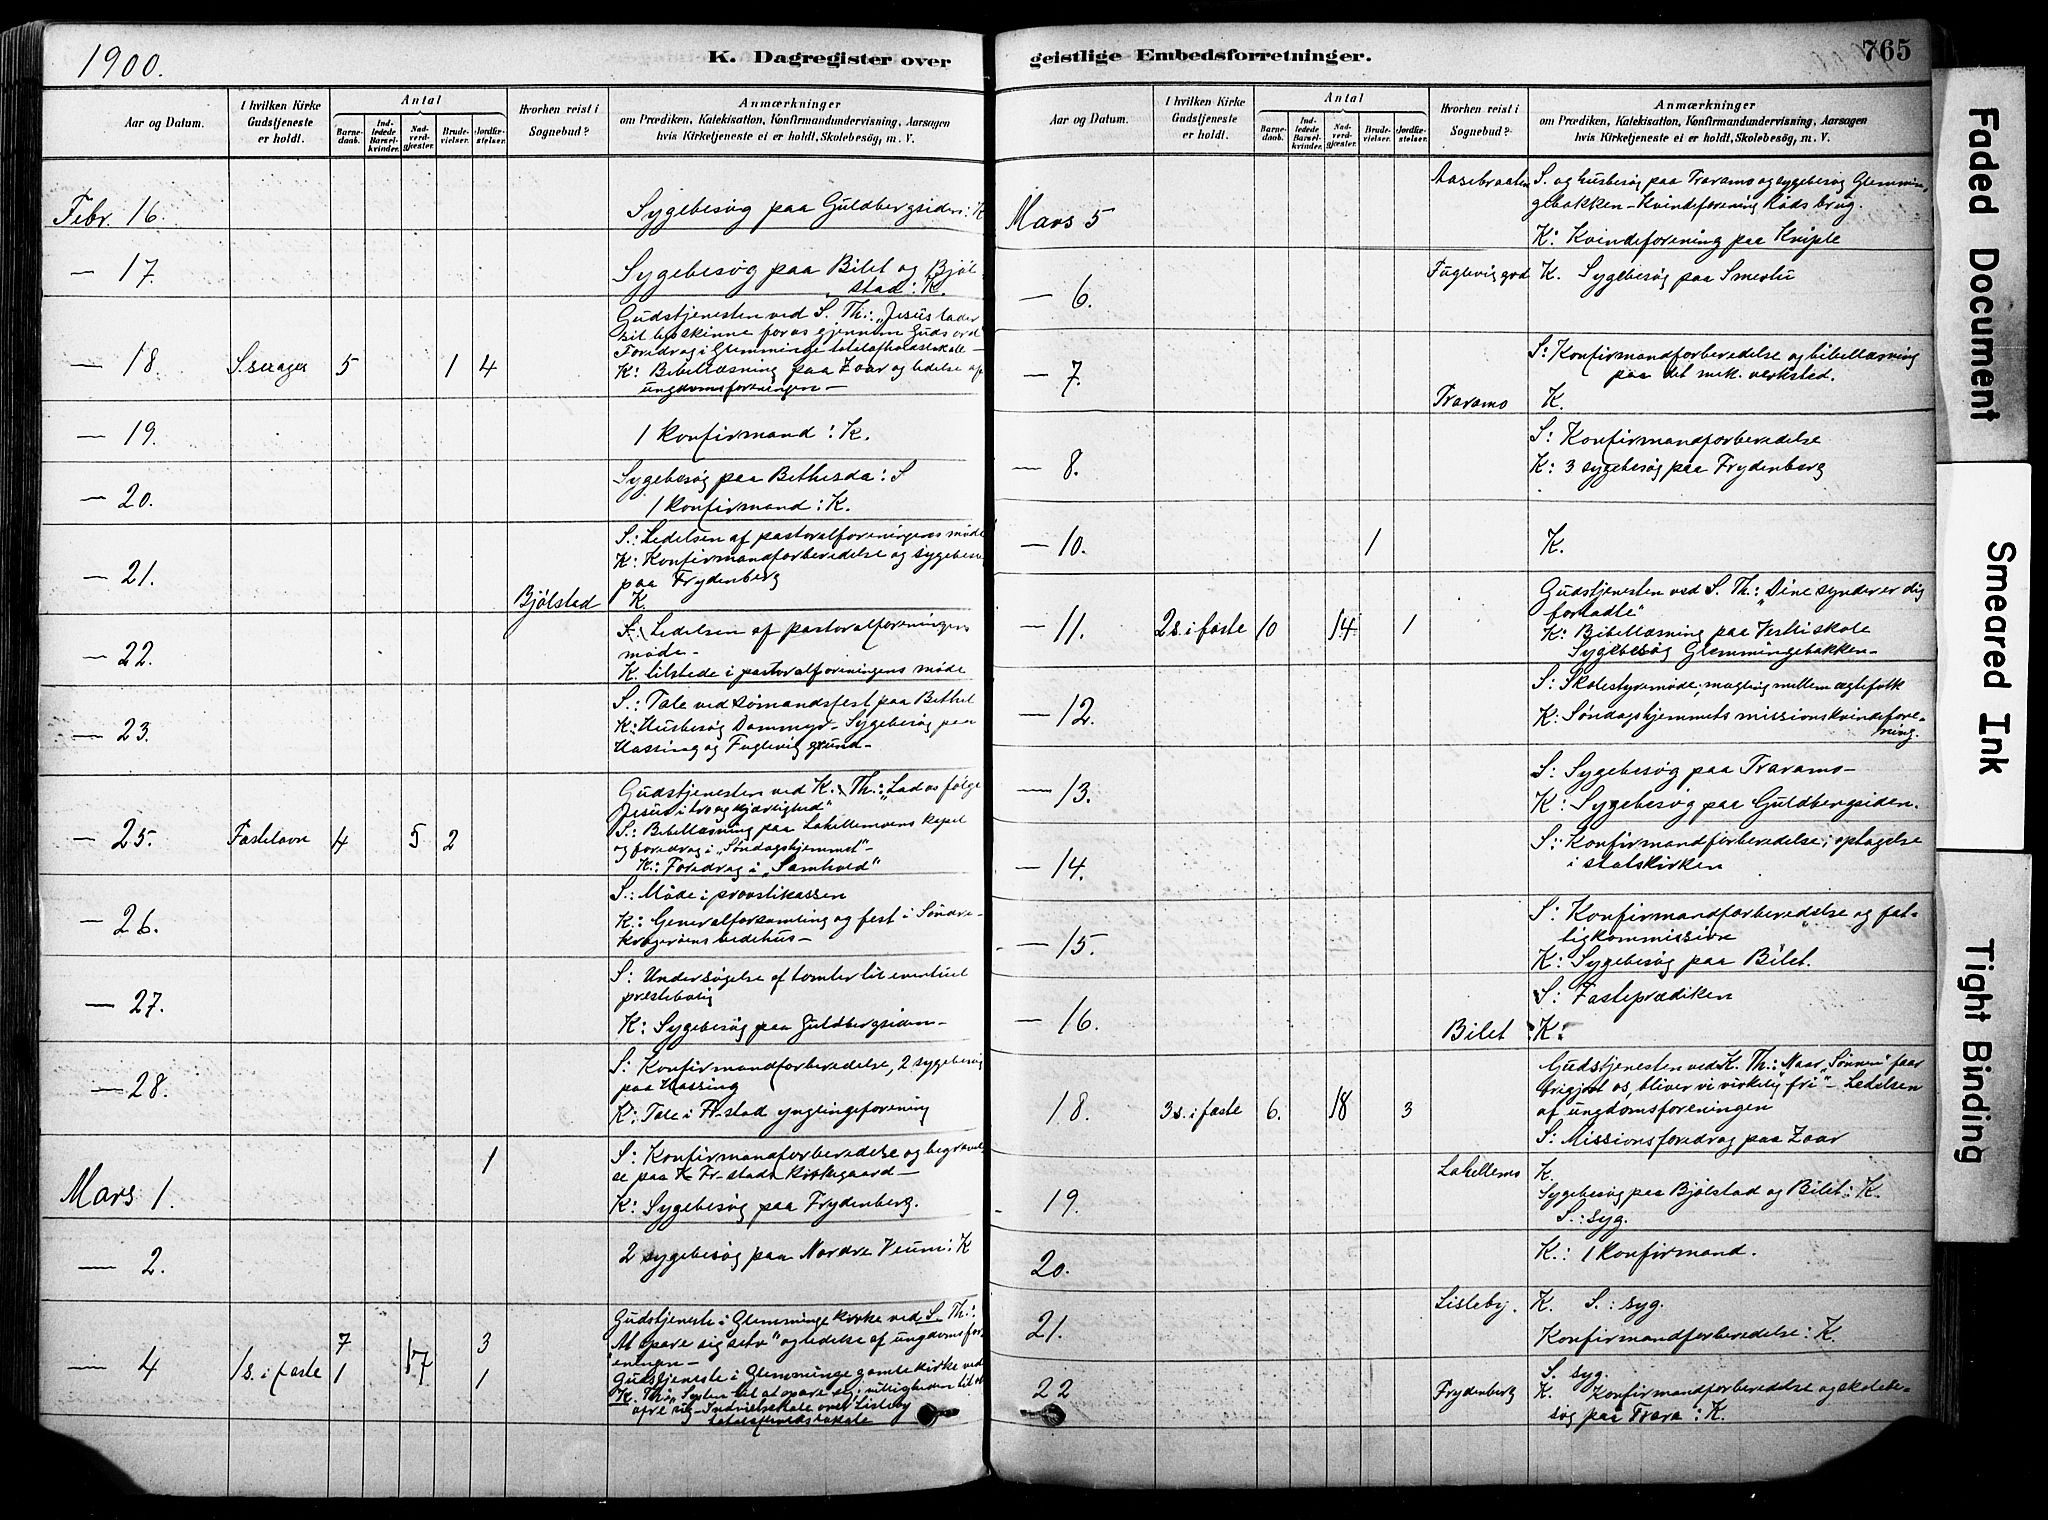 1900.
K. Dagregister over
Aar og Datum.
I hvilken Kirke
Gudstjeneste
er holdt.
Antal
Barne-
daab.
Ind-
ledede
Barsel-
kvinder.
Nad-
verd-
gjæster.
Brude-
vielser.
Jordfæ-
stelser.
Hvorhen reist i
Sognebud?
Anmærkninger
om Prædiken, Katekisation, Konfirmandundervisning, Aarsagen
hvis Kirketjeneste ei er holdt, Skolebesøg, m. V.
Febr. 16. Sygebesøg paa Guldbergsiden: K
— 17. Sygebesøg paa Bilet og Bjøl-
stad: K.
— 18. S. serager 5 1 4
Gudstjenesten ved S. Th.: „Jesus lader
sit lys skinne for os gjennem Guds ord"
Foredrag i Glemminge totalafholdslokale –
K: Bibellæsning paa Zoar og ledelse af
ungdomsforeningen –
— 19. 1 konfirmand: K.
— 20. Sygebesøg paa Bethesda: S
1 konfirmand: K.
— 21. S.: Ledelsen af pastoralforeningens møde
K: Konfirmandforberedelse og sygebesøg
paa Frydenberg
Bjølstad K.
— 22. S. Ledelsen af pastoralforeningens
møde –
K. tilstede i pastoralforeningens møde
— 23. S.: Tale ved sømandsfest paa Bethel
K: Husbesøg Dammyr – Sygebesøg paa
Hassing og Fuglevig grund –
— 25. Fastelavn 4 5 2
Gudstjenesten ved K. Th.: „Lad os følge
Jesus i tro og kjærlighed"
S.: Bibellæsning paa Lahellemoens kapel
og foredrag i „Søndagshjemmet" –
K.: Foredrag i „Samhold"
— 26. S.: Møde i provstikassen
K: Generalforsamling og fest i Søndre
Kragerøens bedehus –
— 27. S: Undersøgelse af tomter til eventuel
præstebolig
K: Sygebesøg paa Guldbergsiden –
— 28. S: Konfirmandforberedelse, 2 sygebesøg
paa Hassing
K: Tale i Fr.stad ynglingeforening
Mars 1. 1 S: Konfirmandforberedelse og begravel-
se paa Fr-stads kirkegaard –
K: Sygebesøg paa Frydenberg.
— 2. 2 sygebesøg paa Nordre Veum: K
— 4 1 s. i faste 7 1 17 3 1
Gudstjeneste i Glemminge kirke ved S. Th.:
At spare sig selv" og ledelse af ungdomsfor-
eningen –
Gudstjeneste i Glemminge gamle kirke ved
K. Th: „Lysten til at spare sig; uvilligheden til at
ofre sig – Indvielsestale over Lisleby
totalafholdslokale
geistlige Embedsforretninger.
765
Aar og Datum.
I hvilken Kirke
Gudstjeneste
er holdt.
Antal
Barne-
daab.
Ind-
ledede
Barsel-
kvinder.
Nad-
verd-
gjæster.
Brude-
vielser.
Jordfæ-
stelser.
Hvorhen reist i
Sognebud?
Anmærkninger
om Prædiken, Katekisation, Konfirmandundervisning, Aarsagen
hvis Kirketjeneste ei er holdt, Skolebesøg, m. V.
Mars 5 Aasebraaten S. og husbesøg paa Traramo og sygebesøg Glemmin-
gebakken – Kvindeforening Raads brug.
K: Kvindeforening paa Kniple
— 6. Fuglevig grd K. Sygebesøg paa Smertu
— 7. S: Konfirmandforberedelse og bibellæsning
paa det mek. verksted.
Traramo K.
— 8. S: Konfirmandforberedelse
K: 3 sygebesøg paa Frydenberg
— 10. 1 K.
— 11. 2 s. i faste 10 14 1
Gudstjenesten ved S. Th: „Dine synder er dig
forladte"
K: Bibellæsning paa Vestli skole
Sygebesøg Glemmingebakken –
— 12. S: Skolestyremøde; mægling mellem ægtefolk
K: Søndagshjemmets missionskvindefore-
ning.
— 13. S: Sygebesøg paa Traramo –
K: Sygebesøg paa Guldbergsiden.
— 14. S: Konfirmandforberedelse; optagelse
i statskirken
— 15. S: Konfirmandforberedelse og fat-
tigkommission
K: Sygebesøg paa Bilet.
— 16. S: Fasteprædiken
Bilet K:
— 18. 3 s. i faste 6. 18 3
Gudstjenesten ved K. Th: „Naar „Sønnen" faar
frigjort os, bliver vi virkelig fri" – Ledelsen
af ungdomsforeningen
S: Missionsforedrag paa Zoar
19. Lahellemo K.
Sygebesøg paa Bjølstad og Bilet: K.
S.: syg.
20. K.: 1 konfirmand.
21. Lisleby. K. S.: syg.
Konfirmandforberedelse: K.
22 S. syg.
Frydenberg K. Konfirmandforberedelse og skolebe-
søg paa Trara: K.
Faded Document
Smeared Ink
Tight Binding